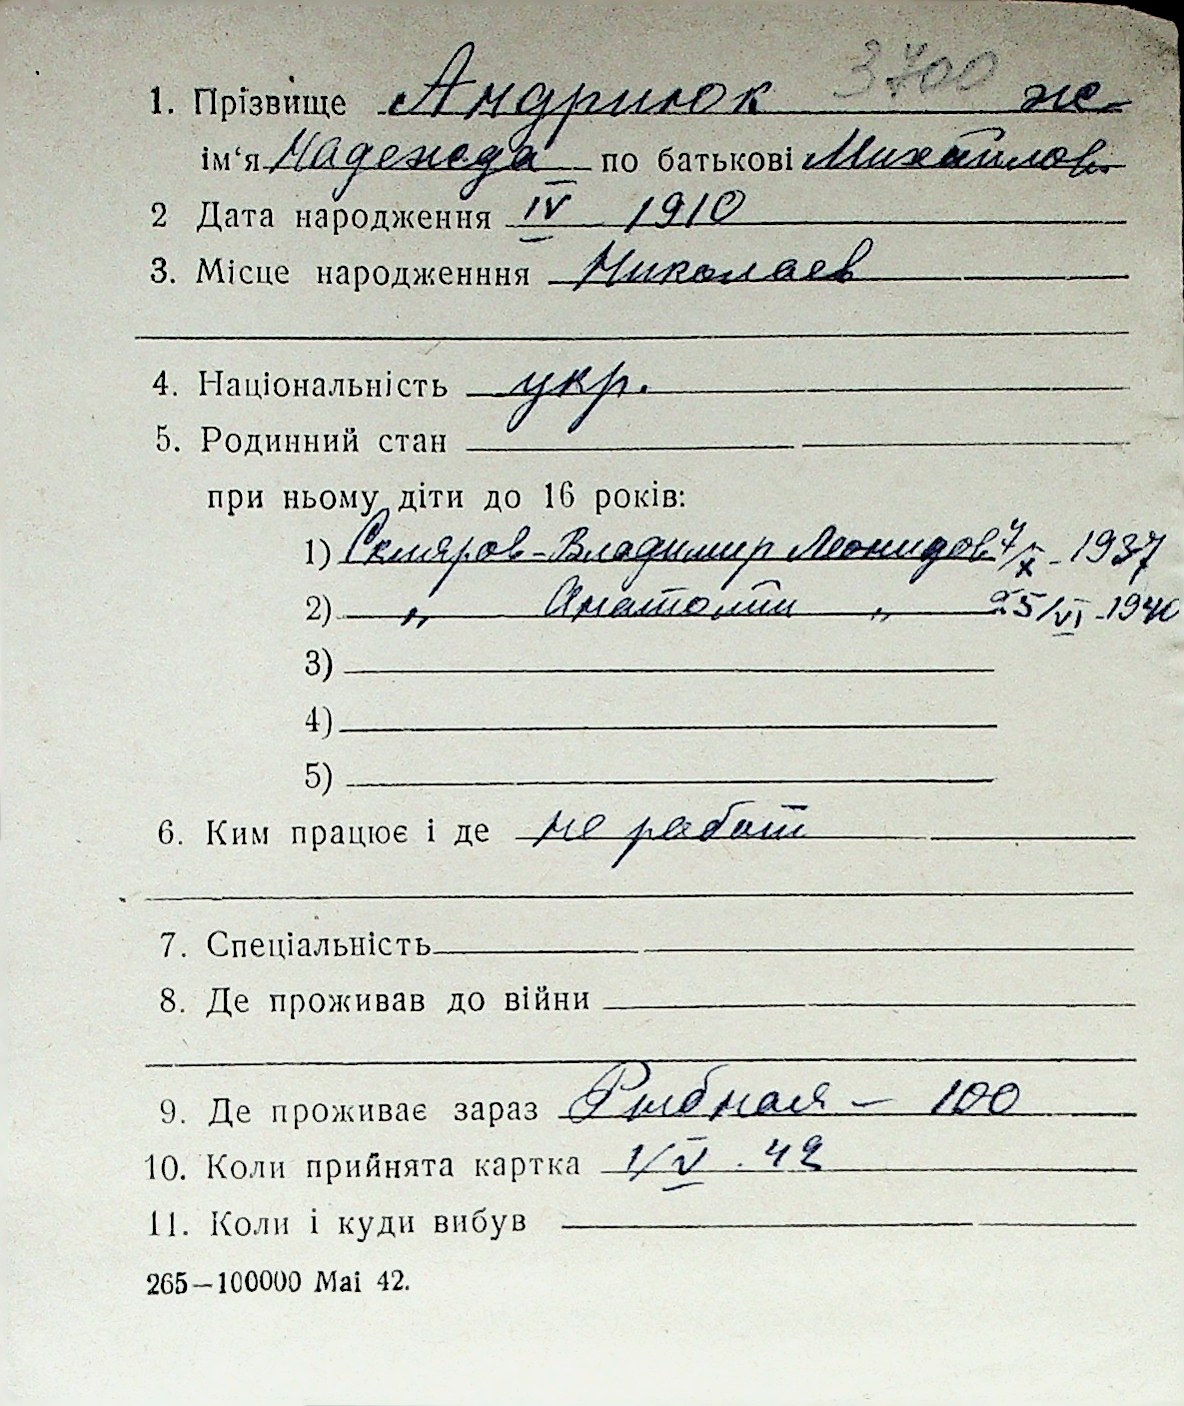 3700
1. Прізвище Андриюк же
ім‘я Надежда по батькові Михайлов.
2 Дата народження IV 1910
3. Місце народженння Николаев
4. Національність укр.
5. Родинний стан
при ньому діти до 16 років:
1) Скляров-Владимир Леонидов 4/X - 1937
2) „ Анатолий „ 25/VI - 1940
3)
4)
5)
6. Ким працює і де не работ
7. Спеціальність
8. Де проживав до війни
9. Де проживає зараз Рыбная - 100
10. Коли прийнята картка 1/V . 42
11. Коли і куди вибув
265—100000 Mai 42.